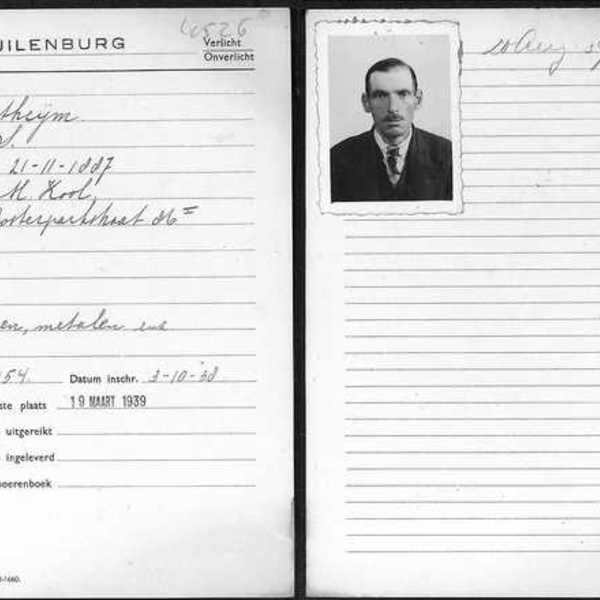 UILENBURG
4526
Verlicht
Onverlicht
21-11-1887
M. Kool,
Oosterparkstraat 86 II
en, metalen enz
54. Datum inschr. 3-10-38
ste plaats 19 MAART 1939
uitgereikt
ingeleverd
oerenboek
-1660.
20 Aug